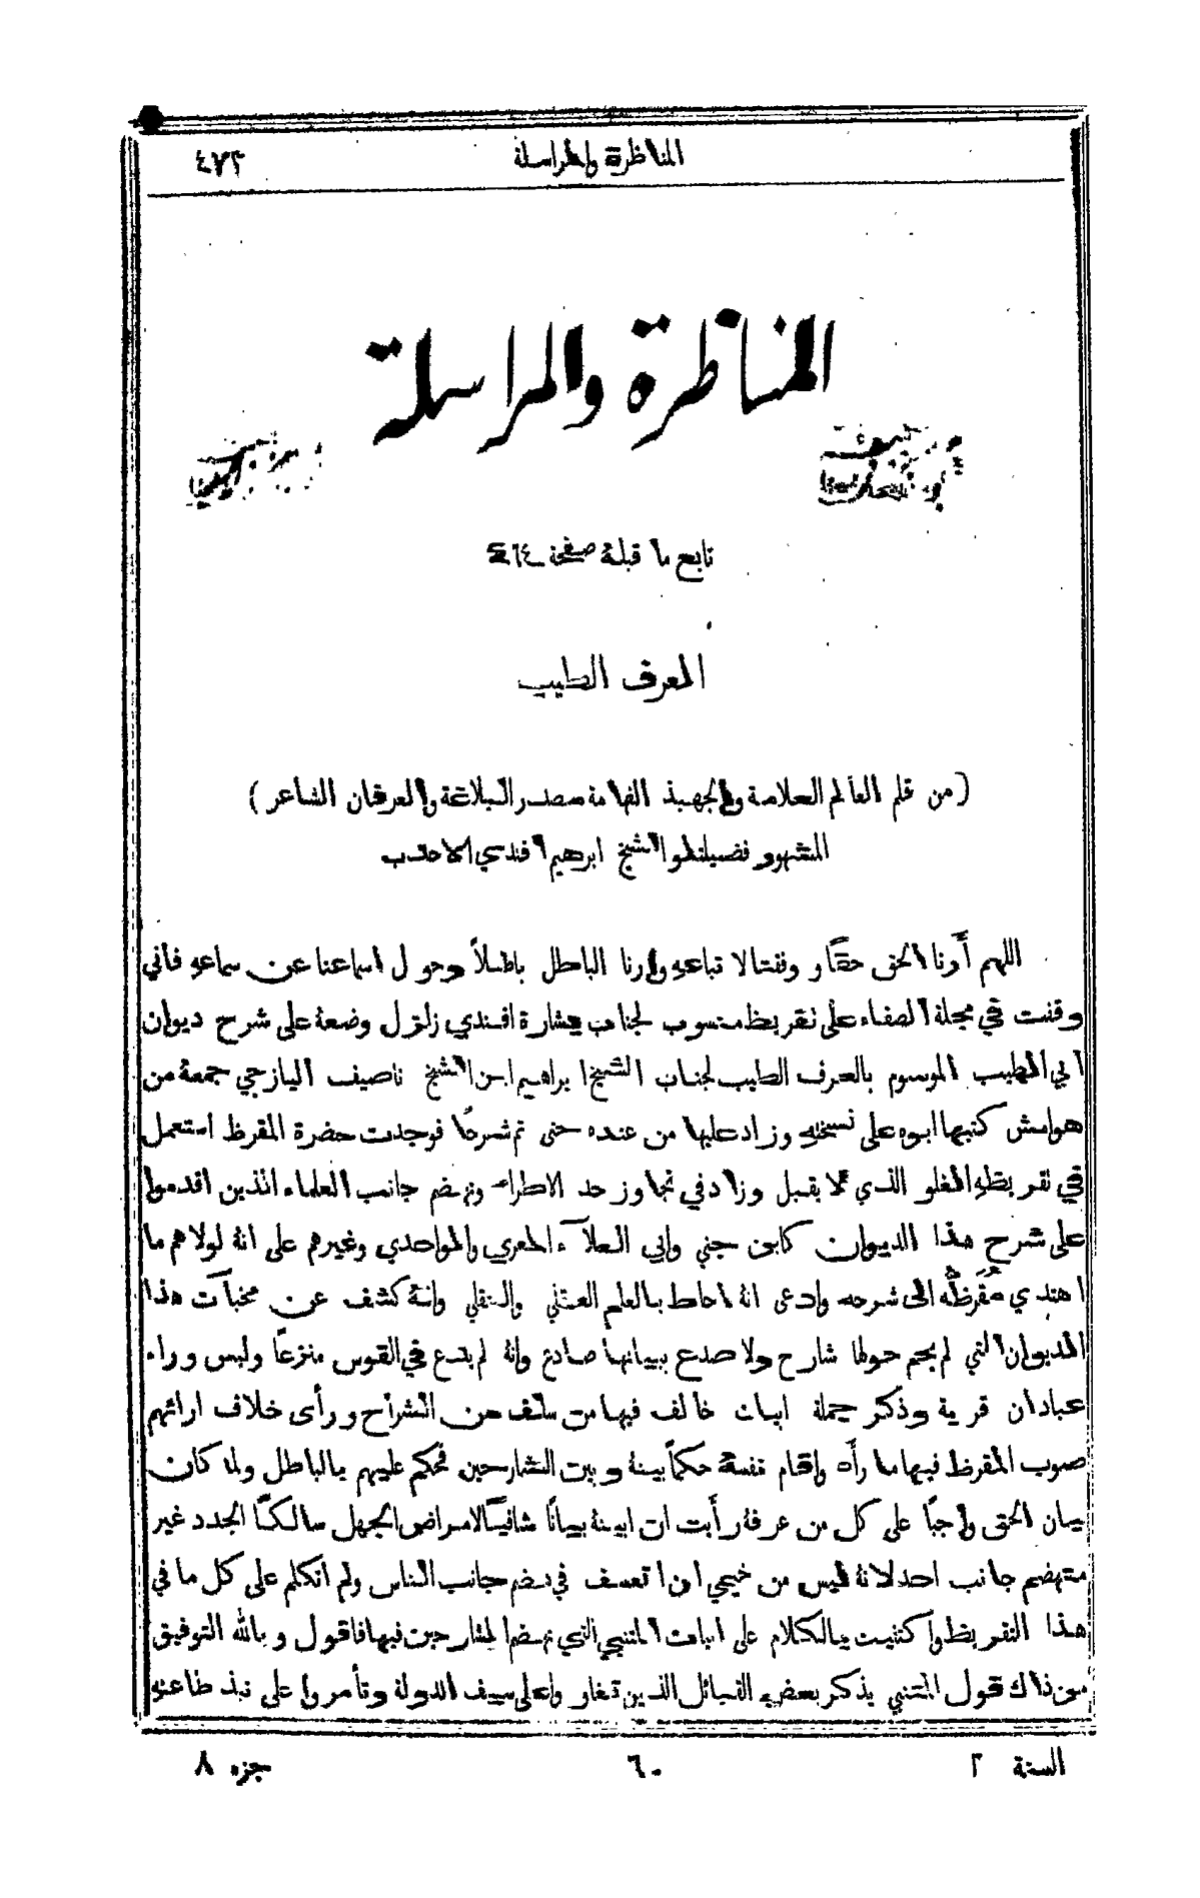 المناظرة والمراسلة ٤٧٣
المناظرة والمراسلة
تابع ما قبلة صفحة ٤٦٤
العرف الطيب
(من قلم العالم العلامة والجهبذ الفهامة مصدر البلاغة والعرفان الشاعر)
المشهور فضيلتلو الشيخ ابرهيم افندي الاحدب
اللهم أرنا الحق حقًا ووفقنا لاتباعه وارنا الباطل باطلاً وحول اسماعنا عن سماعه فاني
وقفت في مجلة الصفاء على نقريظ منسوب لجناب بشارة افندي زلزل وضعة على شرح ديوان
ابي الطيب الموسوم بالعرف الطيب لجناب الشيخ ابراهيم ابن الشيخ ناصيف اليازجي جمعة من
هوامش كتبها ابوه على نسخته وزاد عليها من عنده حتى تم شرحًا فوجدت حضرة المقرظ استعمل
في نقريظه الغلو الذي لا يقبل وزاد في تجاوز حد الاطراء وتهضم جانب العلماء الذين اقدموا
على شرح هذا الديوان كابن جني وابي العلآء المعري والواحدي وغيرهم على انة لولاهم ما
اهتدي مُقَرظُه الى شرحه وادعى انة احاط بالعلم العقلي والنقلي وانة كشف عن مخبآت هذا
الديوان التي لم يحم حولها شارح ولا صدع ببيانها صادع وانة لم يدع في القوس منزعًا وليس وراء
عبادان قرية وذكر جملة ابيات خالف فيها من سلف من الشراح ورأى خلاف ارائهم
صوب المقرظ فيها ما رآه واقام نفسة حكمًا بينة وبين الشارحين فحكم عليهم بالباطل ولما كان
بيان الحق واجبًا على كل من عرفة رأيت ان ابينة بيانًا شافيًا لامراض الجهل سالكًا الجدد غير
متهضم جانب احد لانة ليس من خيمي ان اتعسف في هضم جانب الناس ولم اتكلم على كل ما في
هذا التقريظ واكتفيت بالكلام على ابيات المتنبي التي تهضم الشارحين فيها فاقول وبالله التوفيق
من ذاك قول المتنبي يذكر بعض القبائل الذين تغاووا على سيف الدولة وتأمروا على نبذ طاعته
السنة ٢ ٦٠ جزء ٨